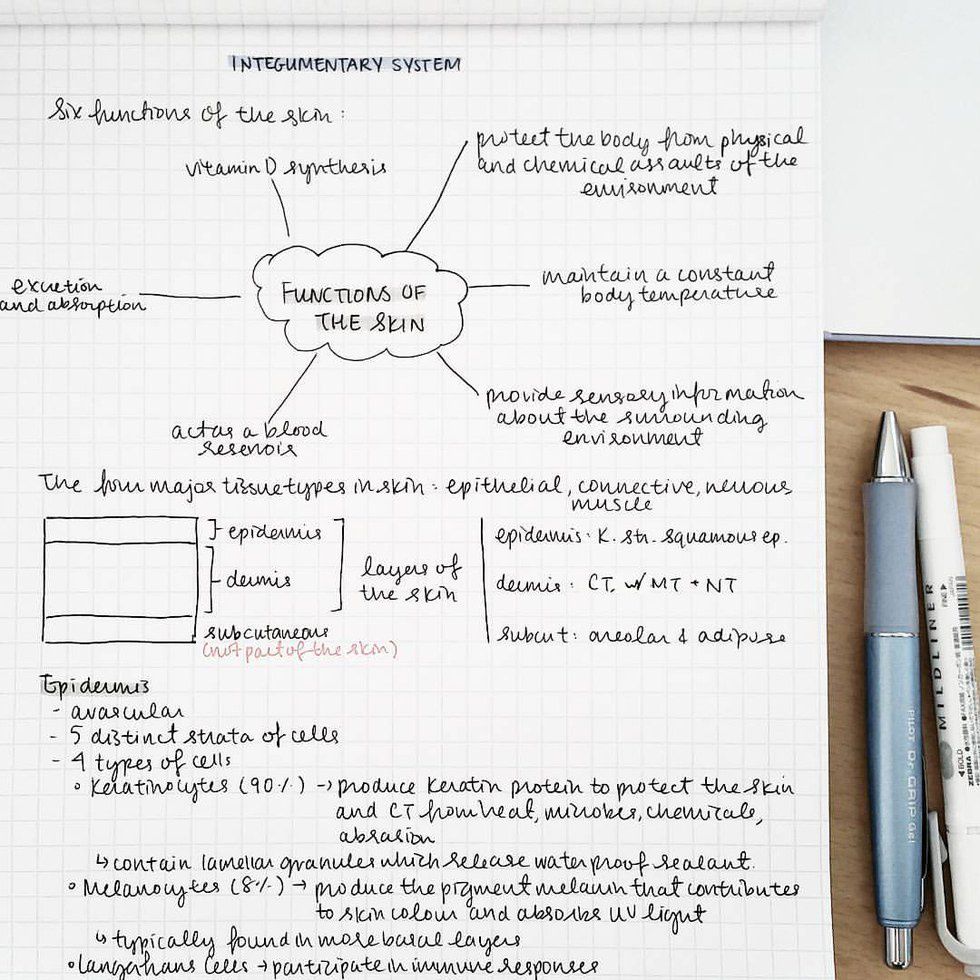 INTEGUMENTARY SYSTEM
Six functions of the skin:
vitamin D synthesis
protect the body from physical
and chemical assaults of the
environment
excretion
and absorption
FUNCTIONS OF
THE SKIN
maintain a constant
body temperature
acts as a blood
reservoir
provide sensory information
about the surrounding
environment
The four major tissue types in skin: epithelial, connective, nervous,
muscle
epidermis
dermis
layers of
the skin
subcutaneous
(not part of the skin)
epidermis: K. str. squamous ep.
dermis: CT, w/ MT + NT
subcut: areolar & adipose
Epidermis
- avascular
- 5 distinct strata of cells
- 4 types of cells
• Keratinocytes (90%) → produce keratin protein to protect the skin
and CT from heat, microbes, chemicals,
abrasion
↳ contain lamellar granules which release waterproof sealant.
• Melanocytes (8%) → produce the pigment melanin that contributes
to skin colour and absorbs UV light
↳ typically found in more basal layers
• Langerhans Cells → participate in immune responses
PILOT Dr. GRIP Gel
MILDLINER
FINE
BOLD
ZEBRA